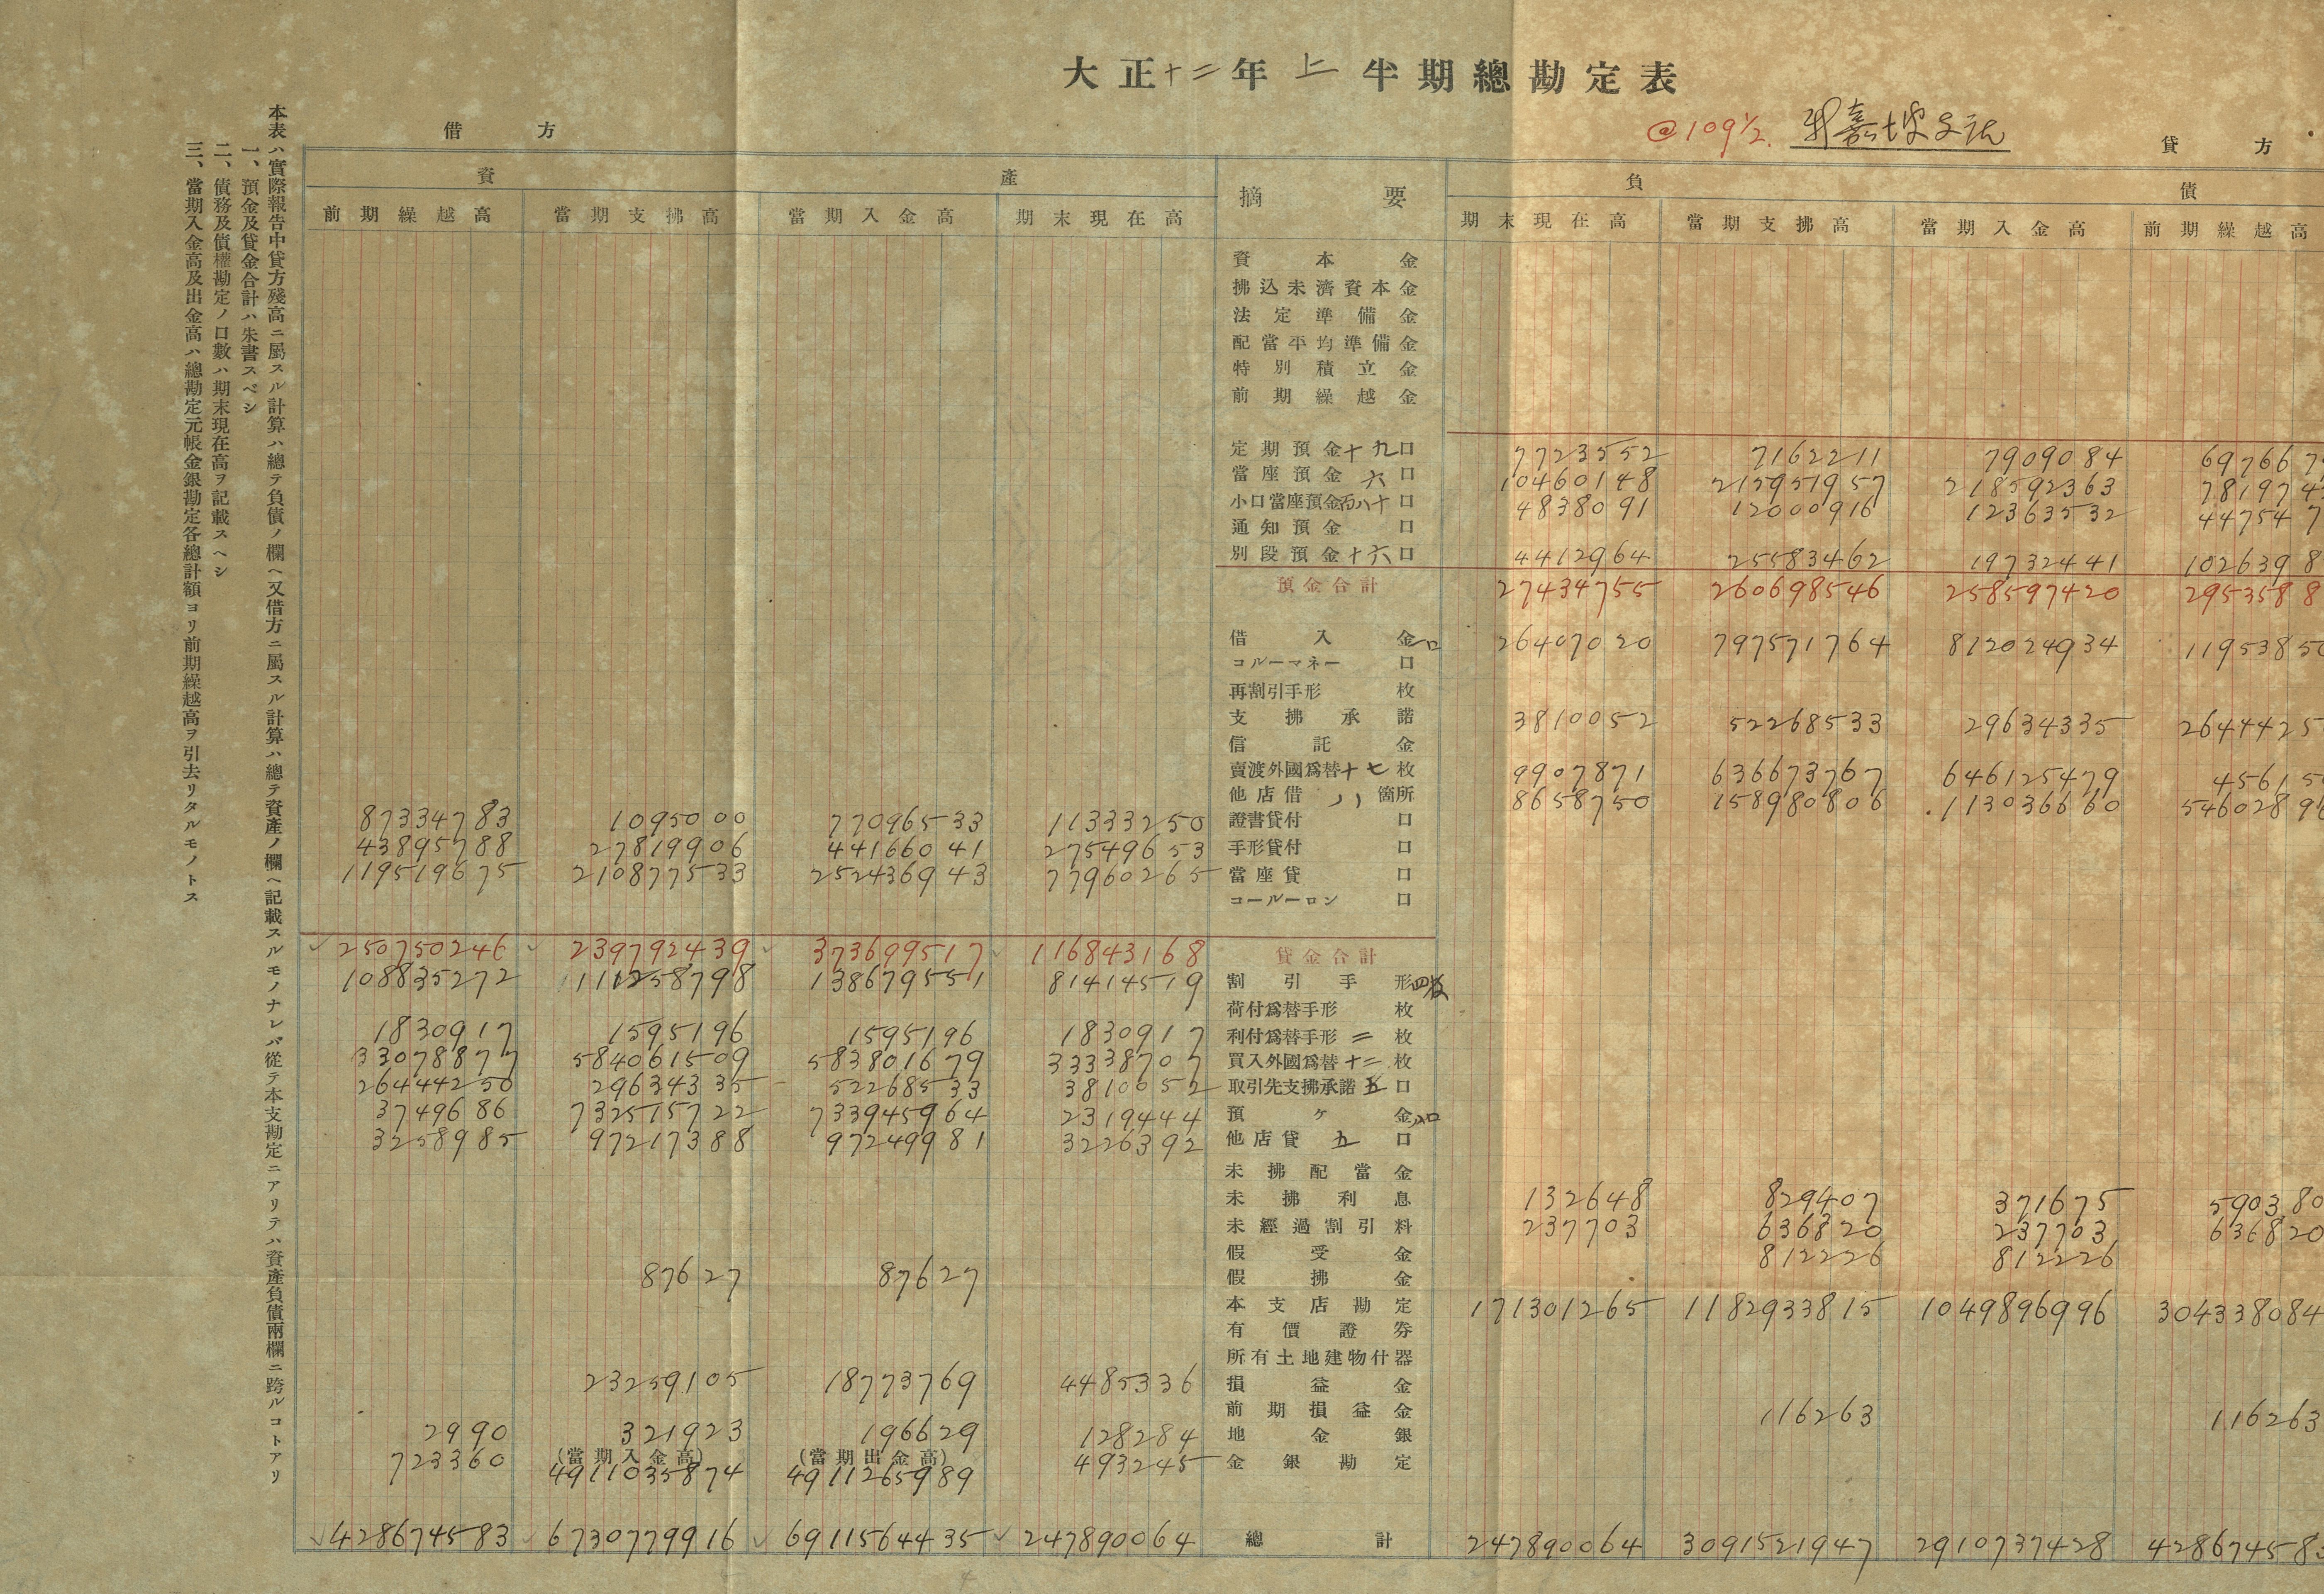 大正十二年上半期總勘定表
@109½. 新嘉坡支店
借方
貸方
資產
摘要
負債
前期繰越高 當期支拂高 當期入金高 期末現在高 期末現在高 當期支拂高 當期入金高 前期繰越高
資本金
拂込未濟資本金
法定準備金
配當平均準備金
特別積立金
前期繰越金
定期預金十九口 7723552 7162211 7909084 697667
當座預金六口 10460148 215951957 218592363 781974
小口當座預金百八十口 4838091 12000916 12363532 447547
通知預金口
別段預金十六口 4412964 25583462 19732441 1026398
預金合計 27434755 260698546 258597420 2953588
借入金一口 26407020 797571764 812024934 1195385
コルーマネー口
再割引手形枚
支拂承諾 3810052 52268533 29634335 2644425
信託金
賣渡外國爲替十七枚 9907871 636673767 646125479 45615
他店借八箇所 8658750 158980806 113036660 5460289
87334783 1095000 77096533 11333250 證書貸付口
43895788 27819906 44166041 27549653 手形貸付口
119519675 210877533 252436943 77960265 當座貸口
コールーロン口
250750246 239792439 373699517 116843168 貸金合計
108835272 111258798 138679551 81414519 割引手形四枚
荷付爲替手形枚
1830917 1595196 1595196 1830917 利付爲替手形二枚
33078877 584061509 583801679 33338707 買入外國爲替十二枚
26444250 29634335 52268533 3810052 取引先支拂承諾五口
3749686 732515722 733945964 2319444 預ヶ金八口
3258985 97217388 97249981 3226392 他店貸五口
未拂配當金
未拂利息 132648 829407 371675 590380
未經過割引料 237703 636820 237703 636820
假受金 812226 812226
87627 87627 假拂金
本支店勘定 171301265 1182933815 1049896996 304338084
有價證券
所有土地建物什器
23259105 18773769 4485336 損益金
前期損益金 116263 116263
2990 321923 196629 128284 地金銀
723360 (當期入金高) 4911035874 (當期出金高) 4911265989 493245 金銀勘定
428674583 6730779916 6911564435 247890064 總計 247890064 3091521947 2910737428 42867458
本表ハ實際報告中貸方殘高ニ屬スル計算ハ總テ負債ノ欄ヘ又借方ニ屬スル計算ハ總テ資產ノ欄ヘ記載スルモノナレバ從テ本支勘定ニアリテハ資產負債兩欄ニ跨ルコトアリ
一、預金及貸金合計ハ朱書スベシ
二、債務及債權勘定ノ口數ハ期末現在高ヲ記載スヘシ
三、當期入金高及出金高ハ總勘定元帳金銀勘定各總計額ヨリ前期繰越高ヲ引去リタルモノトス